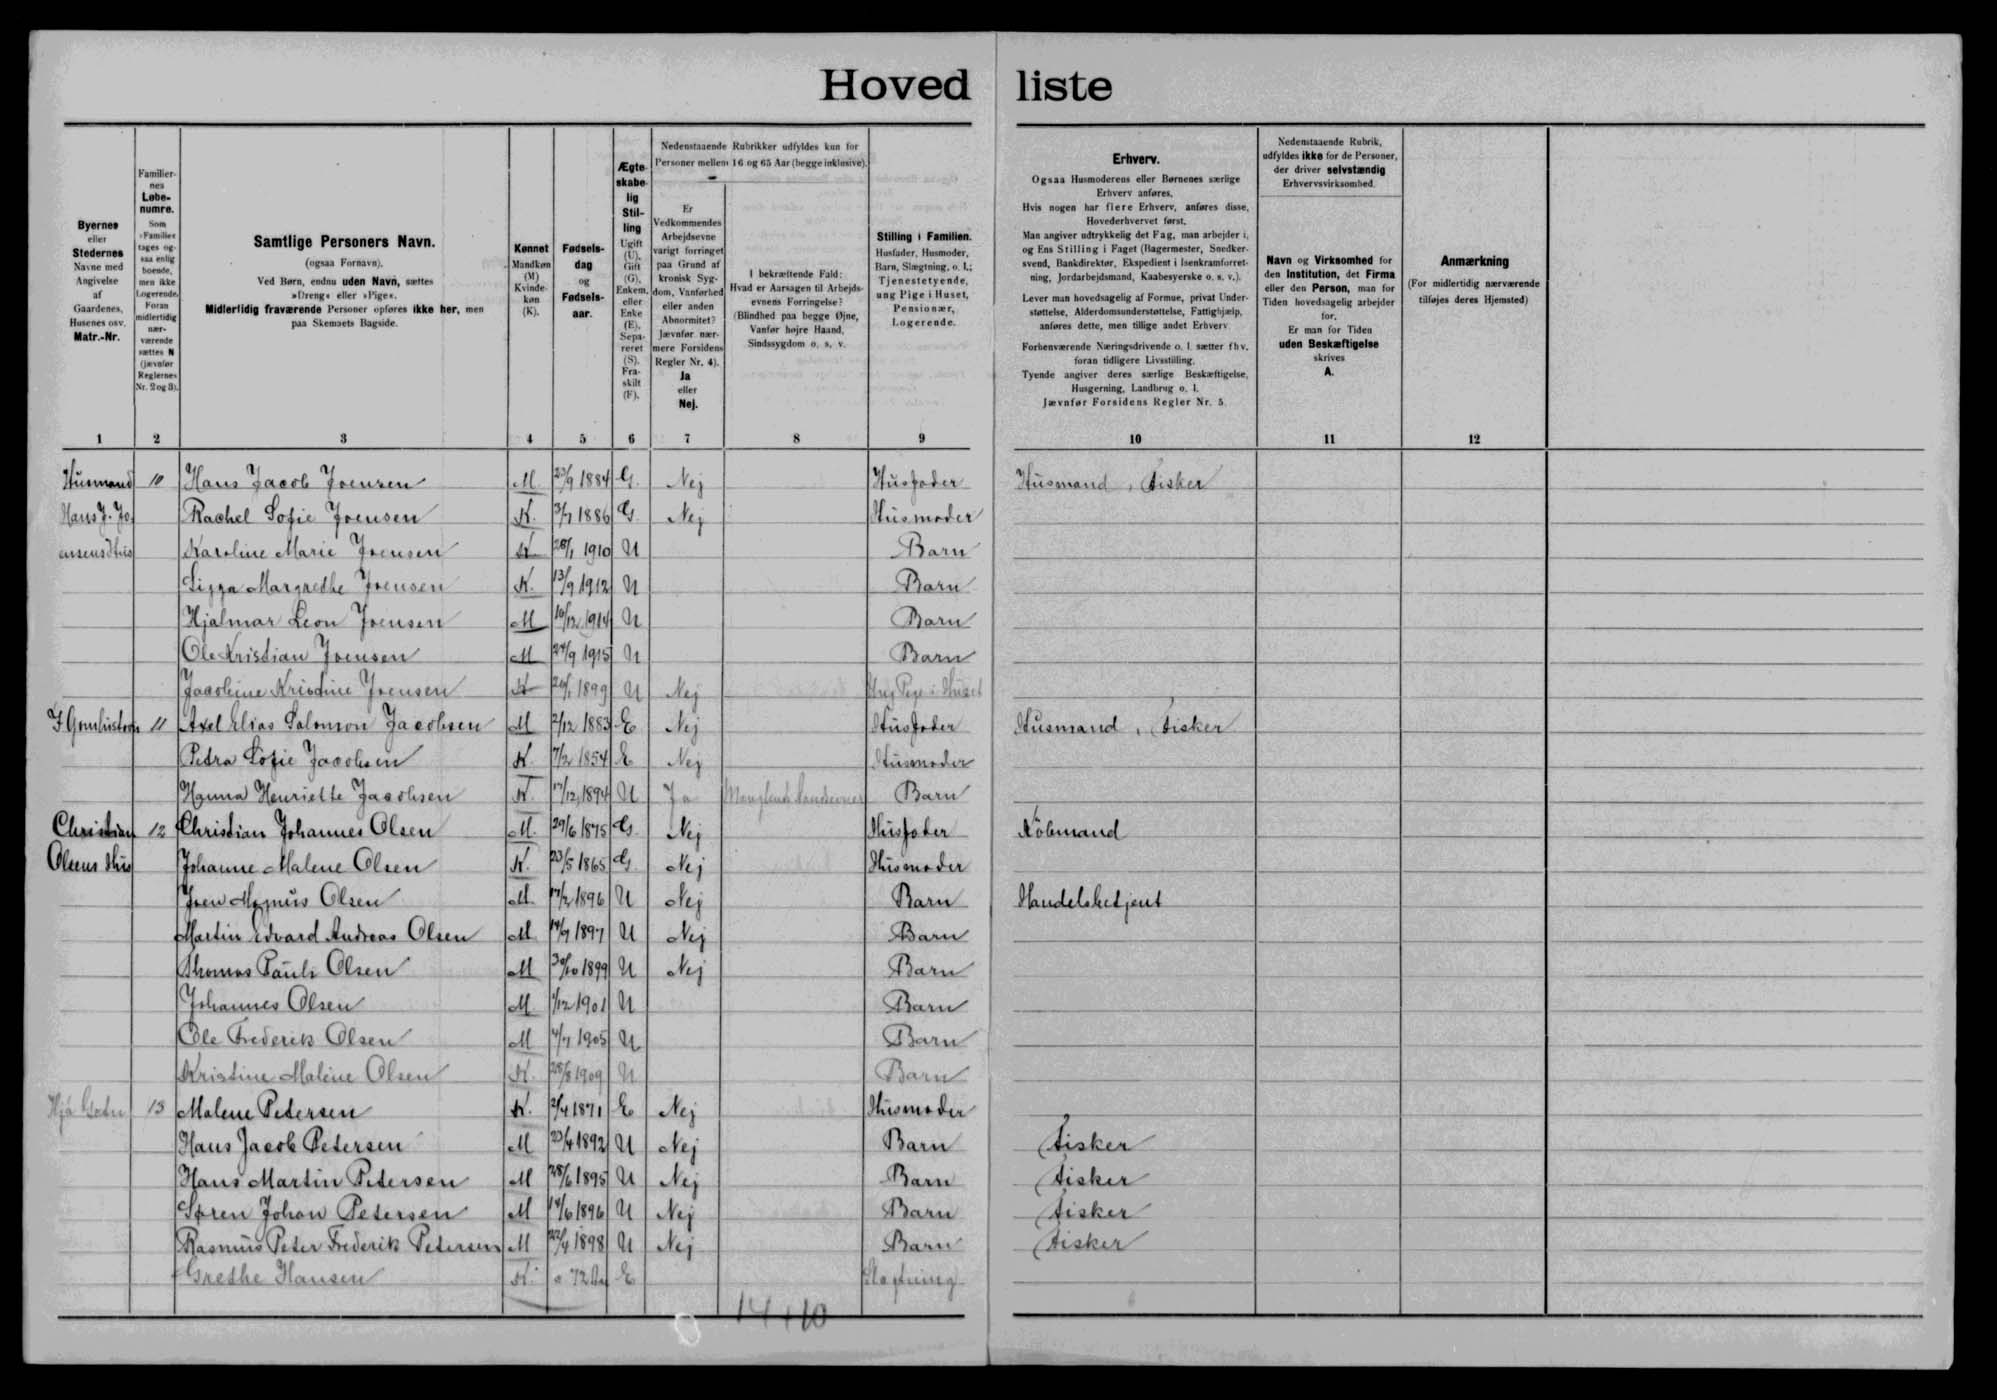 Hovedliste
Byernes eller Stedernes Navne med Angivelse af Gaardenes, Husenes osv. Matr.-Nr.
Familiernes Løbenumre. Som »Familie« tages ogsaa enlig boende, men ikke Logerende. Foran midlertidig nærværende sættes N (jævnfør Reglernes Nr. 2 og 3).
Samtlige Personers Navn. (ogsaa Fornavn). Ved Børn, endnu uden Navn, sættes »Dreng« eller »Pige«. Midlertidig fraværende Personer opføres ikke her, men paa Skemaets Bagside.
Kønnet Mandkøn (M) Kvindekøn (K).
Fødselsdag og Fødselsaar.
Ægteskabelig Stilling Ugift (U), Gift (G), Enkem. eller Enke (E), Separeret (S). Fraskilt (F).
Nedenstaaende Rubrikker udfyldes kun for Personer mellem 16 og 65 Aar (begge inklusive).
Er Vedkommendes Arbejdsevne varigt forringet paa Grund af kronisk Sygdom, Vanførhed eller anden Abnormitet? Jævnfør nærmere Forsidens Regler Nr. 4). Ja eller Nej.
I bekræftende Fald: Hvad er Aarsagen til Arbejdsevnens Forringelse? (Blindhed paa begge Øjne, Vanfør højre Haand, Sindssygdom o. s. v.
Stilling i Familien. Husfader, Husmoder, Barn, Slægtning, o. l.; Tjenestetyende, ung Pige i Huset, Pensionær, Logerende.
Erhverv.
Ogsaa Husmoderens eller Børnenes særlige Erhverv anføres.
Hvis nogen har flere Erhverv, anføres disse, Hovederhvervet først.
Man angiver udtrykkelig det Fag, man arbejder i, og Ens Stilling i Faget (Bagermester, Snedkersvend, Bankdirektør, Ekspedient i Isenkramforretning, Jordarbejdsmand, Kaabesyerske o. s. v.).
Lever man hovedsagelig af Formue, privat Understøttelse, Alderdomsunderstøttelse, Fattighjælp, anføres dette, men tillige andet Erhverv.
Forhenværende Næringsdrivende o. l. sætter fhv. foran tidligere Livsstilling.
Tyende angiver deres særlige Beskæftigelse, Husgerning, Landbrug o. l.
Jævnfør Forsidens Regler Nr. 5.
Nedenstaaende Rubrik, udfyldes ikke for de Personer, der driver selvstændig Erhvervsvirksomhed.
Navn og Virksomhed for den Institution, det Firma eller den Person, man for Tiden hovedsagelig arbejder for. Er man for Tiden uden Beskæftigelse skrives A.
Anmærkning (For midlertidig nærværende tilføjes deres Hjemsted)
1 2 3 4 5 6 7 8 9 10 11 12
Husmand 10 Hans Jacob Joensen M. 23/9 1884 G. Nej Husfader Husmand, Fisker
Hans J. Jo Rachel Sofie Joensen K. 3/7 1886 G. Nej Husmoder
ensens Hus Karoline Marie Joensen K 28/1 1910 U Barn
Sigga Margrethe Joensen K. 13/9 1912 U Barn
Hjalmar Leon Joensen M 10/12 1914 U Barn
Ole Kristian Joensen M 24/9 1915 U Barn
Jacobine Kristine Joensen K 1899 U Nej Ung Pige i Huset
11 Axel Elias Salomon Jacobsen M 2/12 1883 E Nej Husfader Husmand, Fisker
Petra Sofie Jacobsen K. 7/2 1854 E Nej Husmoder
Hanna Henriette Jacobsen K. 17/12 1894 U Ja Manglende Barn
Christian 12 Christian Johannes Olsen M. 29/6 1875 G. Nej Husfader Købmand
Olsens Hus Johanne Malene Olsen K. 23/5 1865 G. Nej Husmoder
Joen Magnus Olsen M 17/2 1896 U Nej Barn Handelsbetjent
Martin Edvard Andreas Olsen M 14/9 1897 U Nej Barn
Thomas Pauli Olsen M 30/10 1899 U Nej Barn
Johannes Olsen M. 1/12 1901 U Barn
Ole Frederik Olsen M 4/7 1905 U Barn
Kristine Malene Olsen K. 28/8 1909 U Barn
13 Malene Petersen K. 2/4 1871 E Nej Husmoder
Hans Jacob Petersen M 23/4 1892 U Nej Barn Fisker
Hans Martin Petersen M 28/6 1895 U Nej Barn Fisker
Søren Johan Petersen M 14/6 1896 U Nej Barn Fisker
Rasmus Peter Frederik Petersen M 22/4 1898 U Nej Barn Fisker
Grethe Hansen K. 72 E Slægtning
14+10